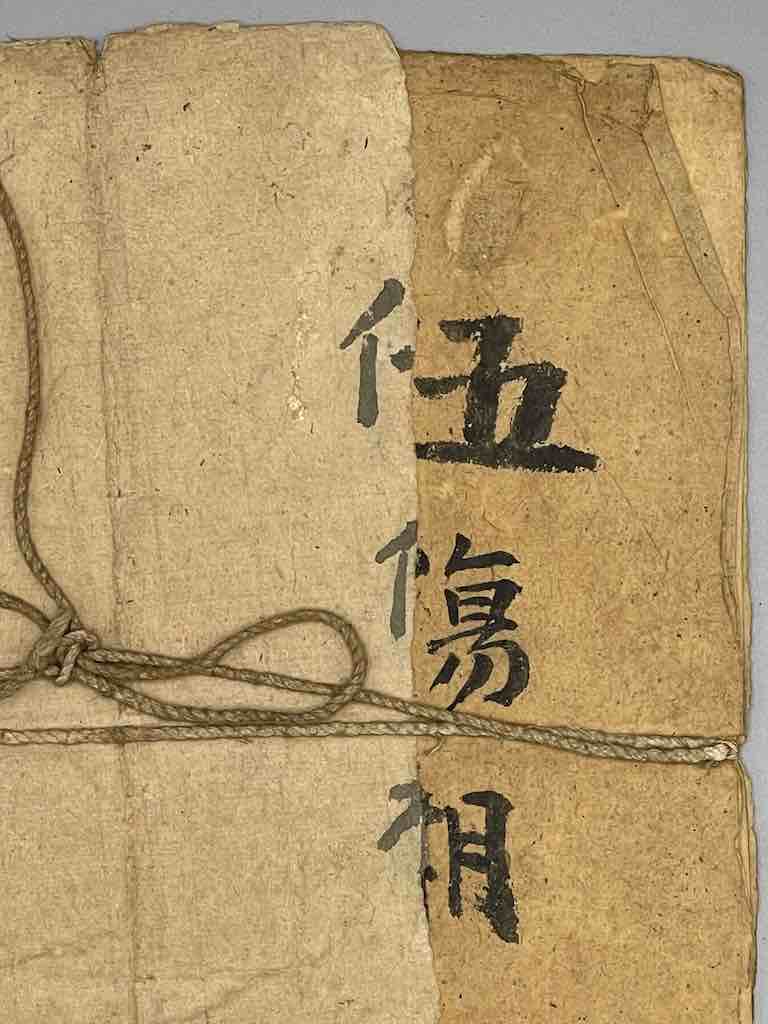 伍傷相